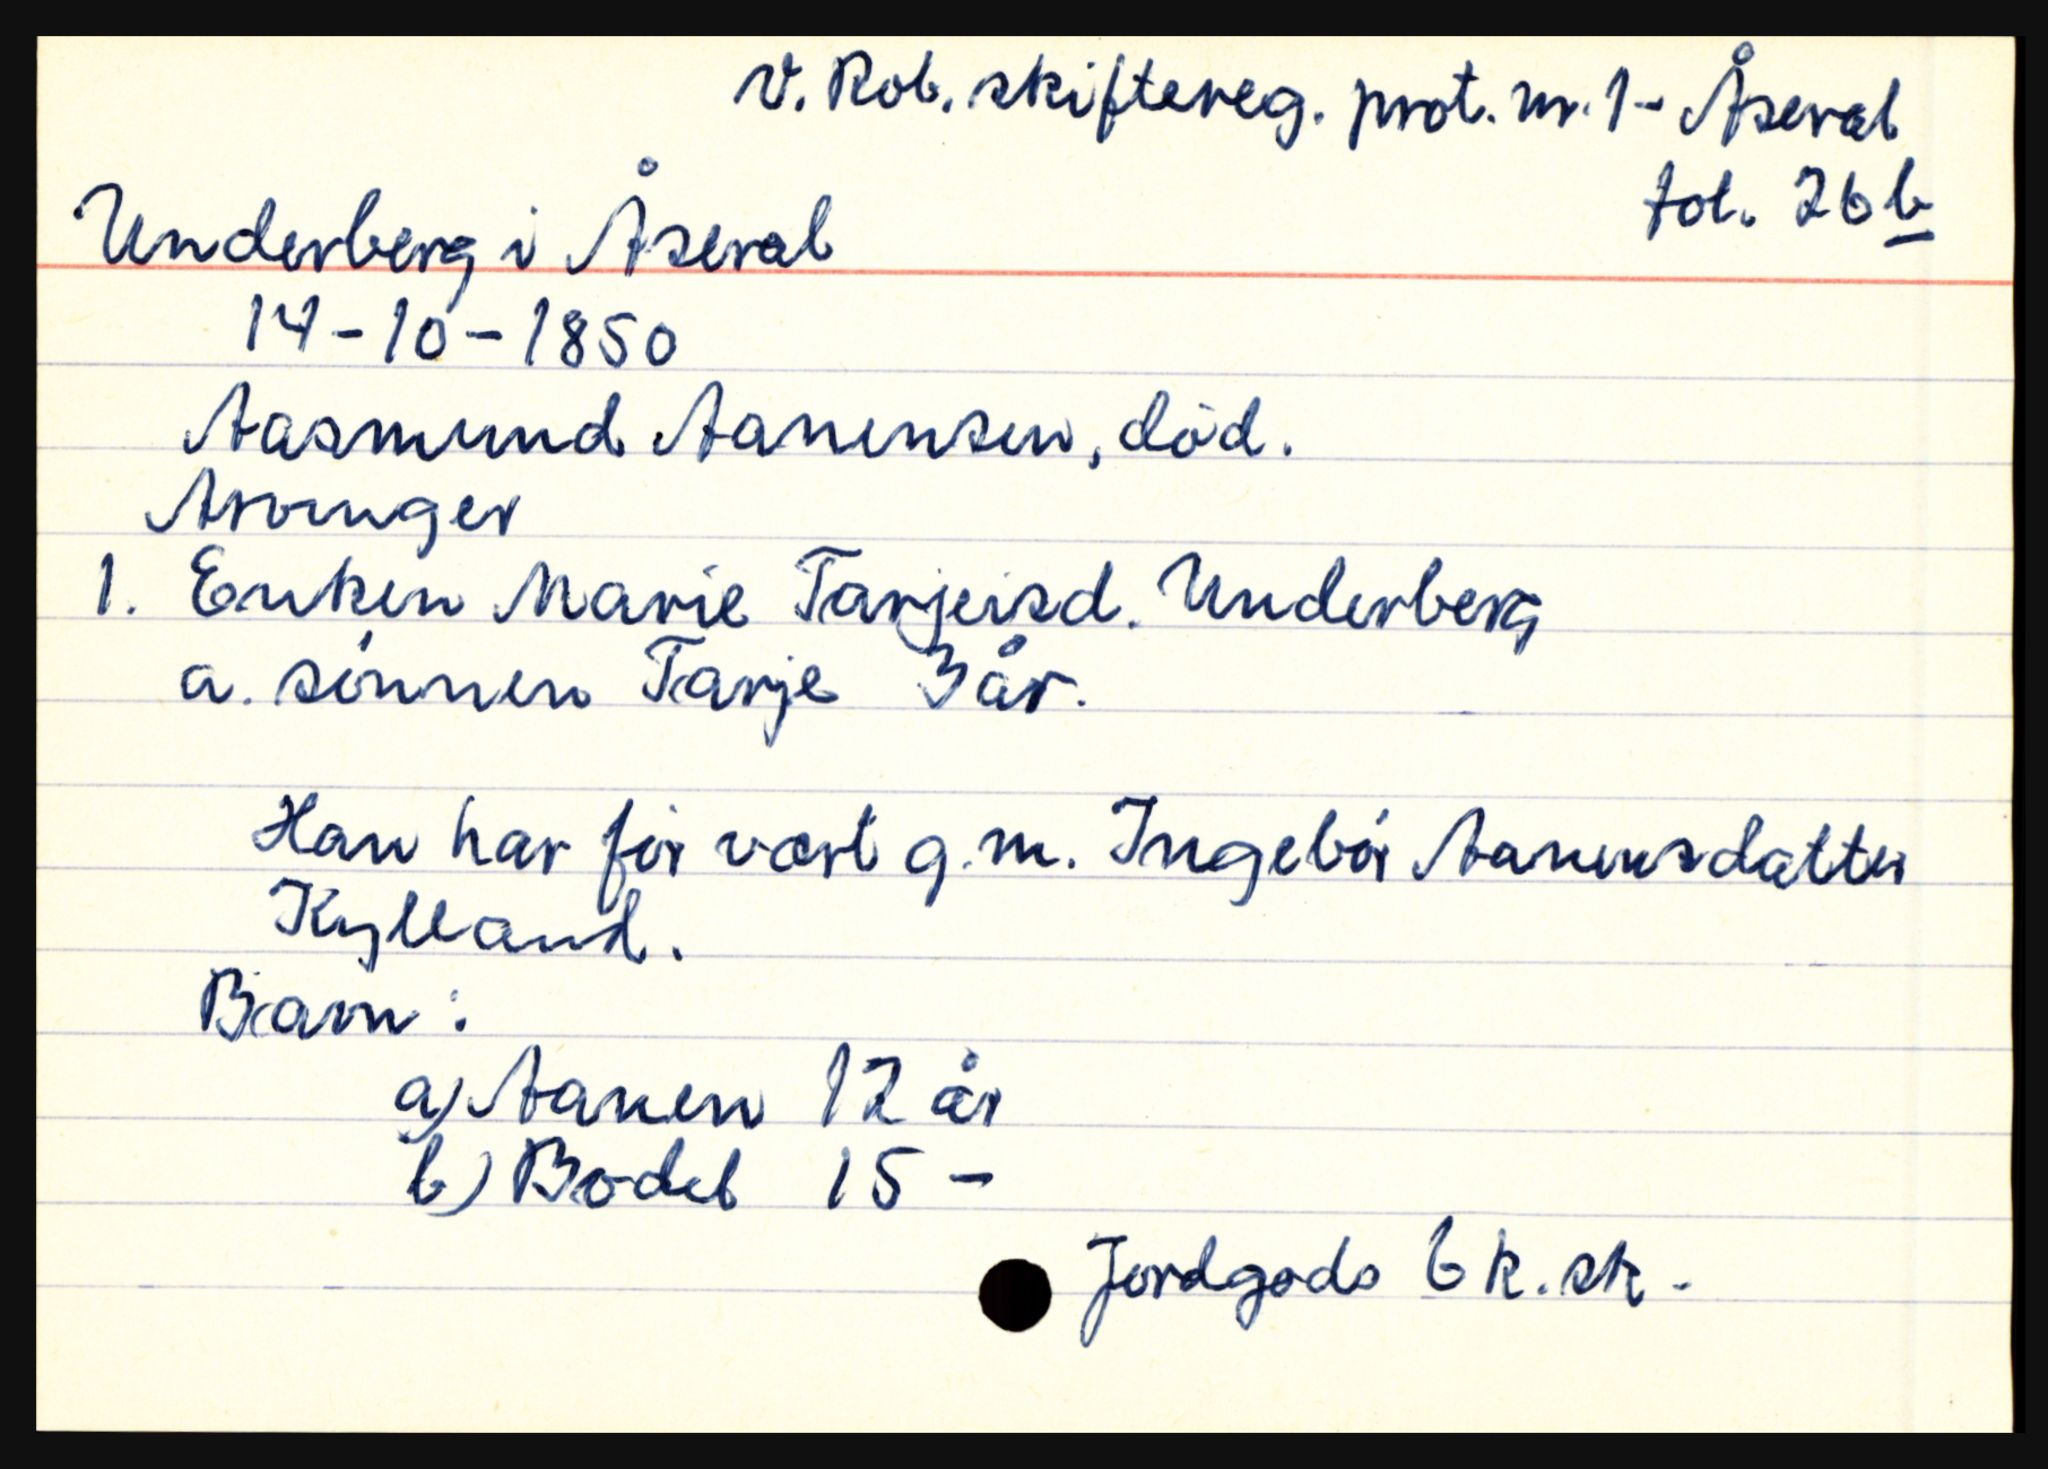 V. Rob. skiftereg. prot. nr. 1 - Åseral
fol. 26 b
Underberg i Åseral
14-10-1850
Aasmund Aanensen, død.
Arvinger
1. Enken Marie Tarjeisd. Underberg
a. sønnen Tarje 3 år.
Han har før vært g.m. Ingebør Aanensdatter
Kylland.
Barn:
a) Aanen 12 år
b) Bodel 15 -
Jordgods 6 k. sk.